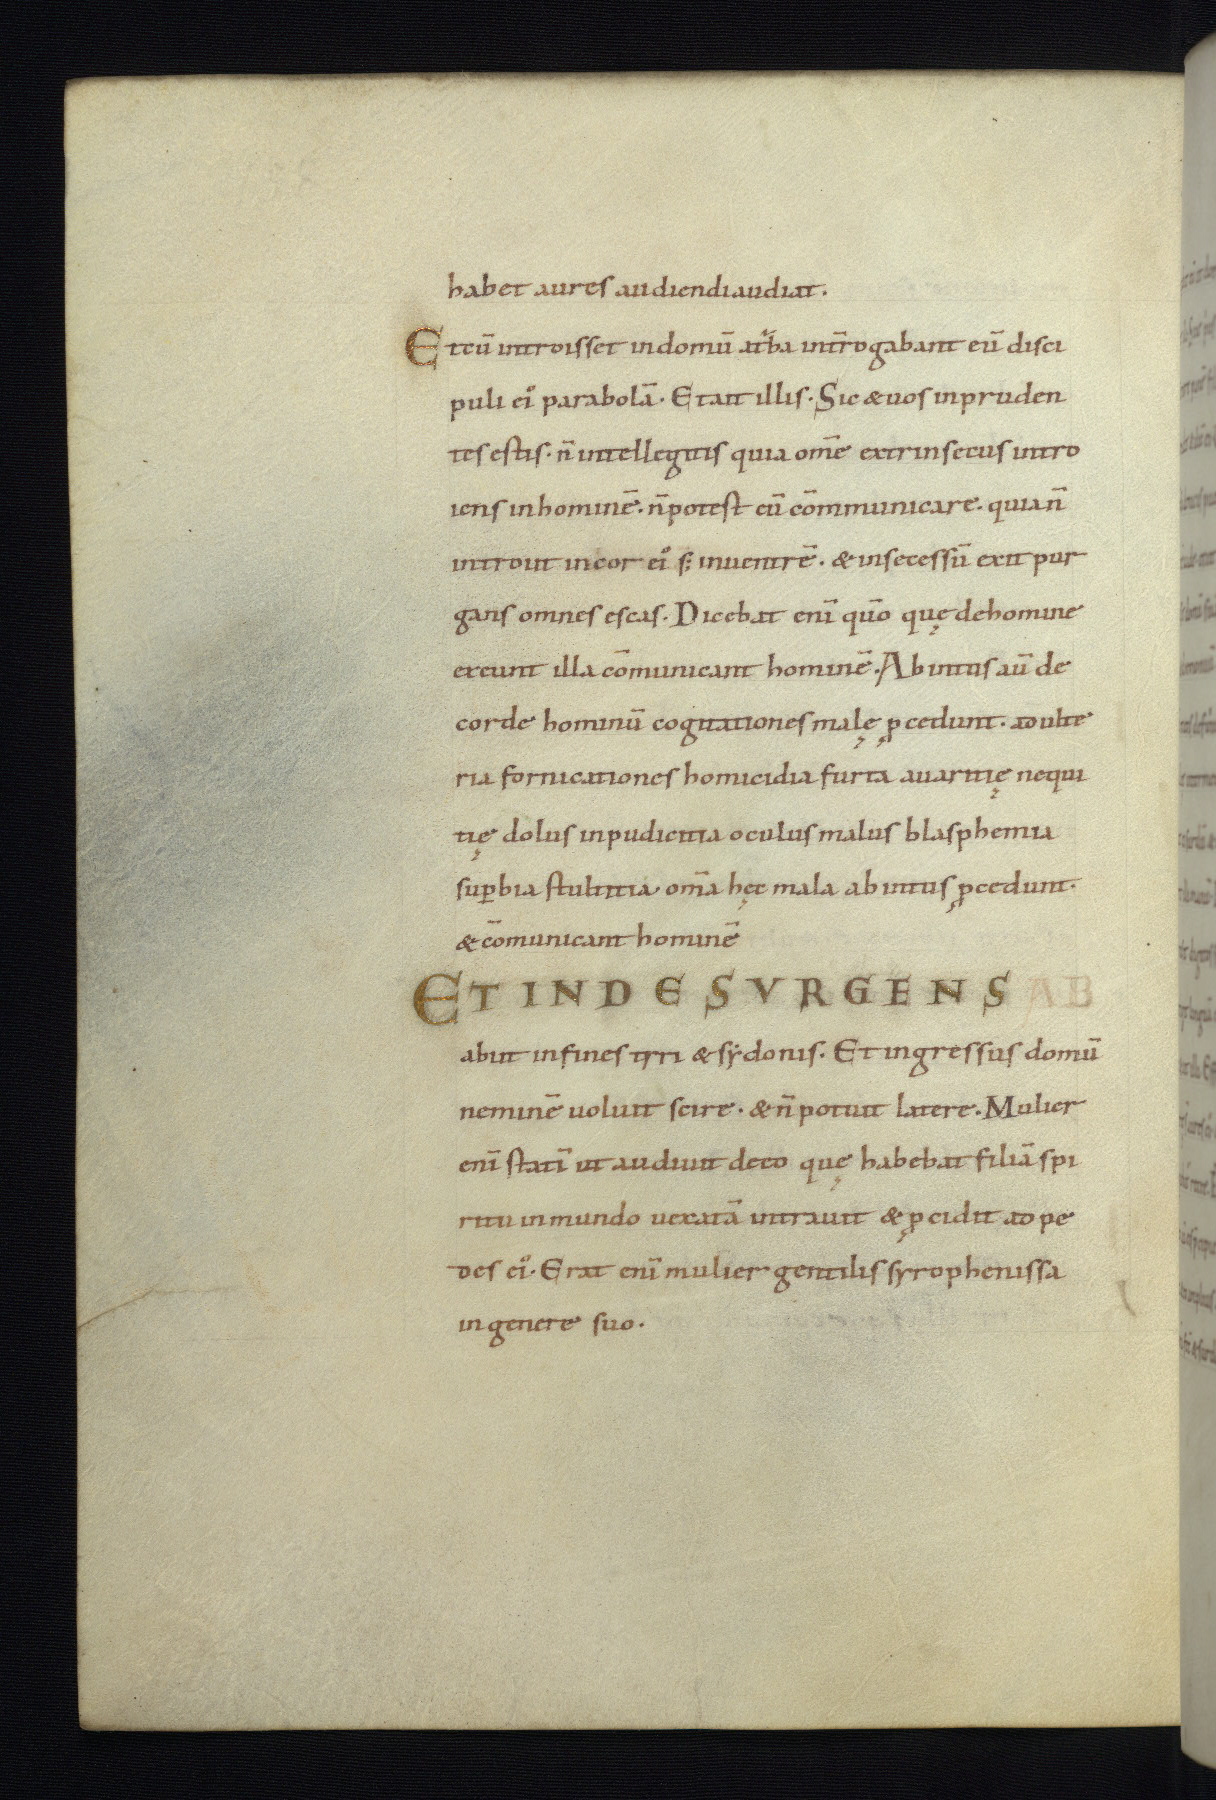 habet aures audiendi audiat.
Et cū introisset in domū a turba intr̄ogabant eū disci
puli ei᾿ parabolā. Et ait illis. Sic & uos inpruden
tes estis. n̄ intellegitis quia om̄e extrinsecus intro
iens in hominē. n̄ potest eū cōmmunicare. quia n̄
introit in cor ei᾿ s; in uentrē. & in secessū exit pur
gans omnes escas. Dicebat enī qūo quę de homine
exeunt illa cōmunicant hominē. Ab intus aū de
corde hominū cogitationes malę ꝓcedunt. adulte
ria fornicationes homicidia furta auaritię nequi
tię dolus inpudicitia oculus malus blasphemia
suꝑbia stultitia. om̄a hęc mala ab intus ꝓcedunt.
& cōmunicant hominē
ET INDE SVRGENS AB
abiit in fines tyri & sẏdonis. Et ingressus domū
neminē uoluit scire. & n̄ potuit latere. Mulier
enī statī ut audiuit de eo quę habebat filiā spi
ritu inmundo uexatā intrauit & ꝓcidit ad pe
des ei᾿. Erat enī mulier gentilis syrophenissa
in genere suo.